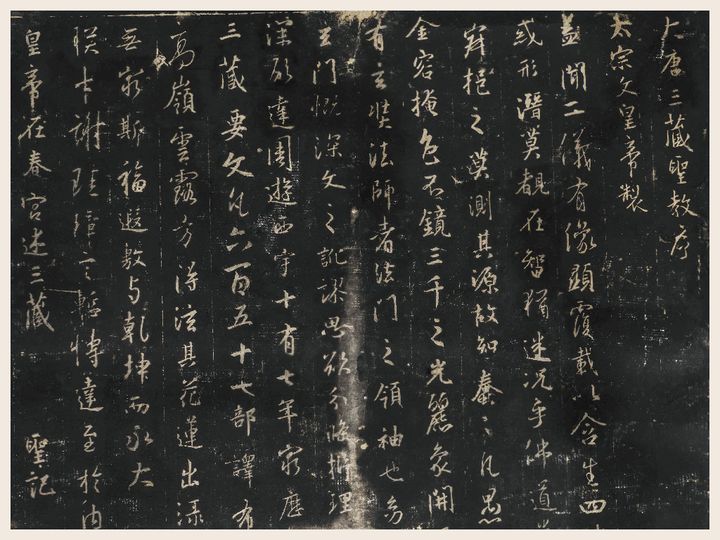 大唐三藏聖教序
太宗文皇帝製
蓋聞二儀有像顯覆載以含生四
或形潛莫覩在智猶迷况乎佛道
寂挹之莫測其源故知蠢々凡愚
金容掩色不鏡三千之光麗象開
有玄奘法師者法門之領袖也幼
玄門慨深文之訛謬思欲分條析理
深願達周遊西宇十有七年窮歷
三藏要文凡六百五十七部譯布
高嶺雲露方得泫其花蓮出淥
無窮斯福遐敷与乾坤而永大
朕才謝珪璋言慚博達至於內
皇帝在春宮述三藏 聖記